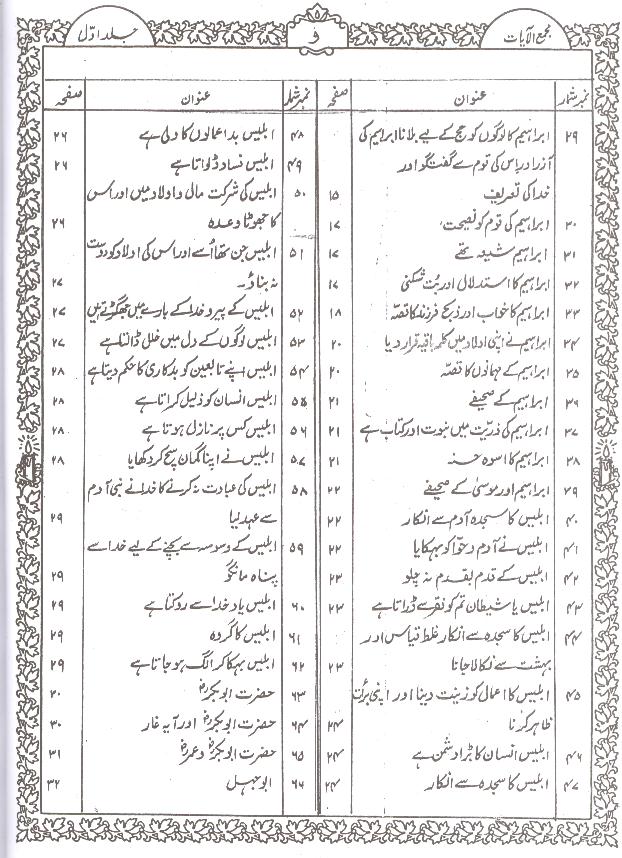 مجمع الآیات
۵
و
جلد اوّل
نمبر شمار عنوان صفحہ
۲۹ ابراہیم کا لوگوں کو حج کے لیے بلانا ابراہیم کی
آزر اور اس کی قوم سے گفتگو اور
خدا کی تعریف ۱۵
۳۰ ابراہیم کی قوم کو نصیحت ۱۷
۳۱ ابراہیم شیعہ تھے ۱۷
۳۲ ابراہیم کا استدلال اور بُت شکنی ۱۷
۳۳ ابراہیم کا خواب اور ذبح فرزند کا قصّہ ۱۸
۳۴ ابراہیم نے اپنی اولاد میں کلمہ باقیہ قرار دیا ۲۰
۳۵ ابراہیم کے مہمانوں کا قصّہ ۲۰
۳۶ ابراہیم کے صحیفے ۲۱
۳۷ ابراہیم کی ذریّت میں نبوت اور کتاب ہے ۲۱
۳۸ ابراہیم کا اسوہ حسنہ ۲۱
۳۹ ابراہیم اور موسیٰ کے صحیفے ۲۲
۴۰ ابلیس کا سجدہ آدم سے انکار ۲۲
۴۱ ابلیس نے آدم و حوّا کو بہکایا ۲۲
۴۲ ابلیس کے قدم بقدم نہ چلو ۲۳
۴۳ ابلیس یا شیطان تم کو فقر سے ڈراتا ہے ۲۳
۴۴ ابلیس کا سجدہ سے انکار غلط قیاس اور
بہشت سے نکالا جانا ۲۳
۴۵ ابلیس کا اعمال کو زینت دینا اور اپنی برأت
ظاہر کرنا ۲۴
۴۶ ابلیس انسان کا بڑا دشمن ہے ۲۴
۴۷ ابلیس کا سجدہ سے انکار ۲۴
نمبر شمار عنوان صفحہ
۴۸ ابلیس بد اعمالوں کا ولی ہے ۲۶
۴۹ ابلیس فساد ڈلواتا ہے ۲۶
۵۰ ابلیس کی شرکت مال و اولاد میں اور اس
کا جھوٹا وعدہ ۲۶
۵۱ ابلیس جن تھا اُسے اور اس کی اولاد کو دوست
نہ بناؤ۔ ۲۷
۵۲ ابلیس کے پیرو خدا کے بارے میں جھگڑتے ہیں ۲۷
۵۳ ابلیس لوگوں کے دل میں خلل ڈالتا ہے ۲۷
۵۴ ابلیس اپنے تابعین کو بدکاری کا حکم دیتا ہے ۲۸
۵۵ ابلیس انسان کو ذلیل کراتا ہے ۲۸
۵۶ ابلیس کس پر نازل ہوتا ہے ۲۸
۵۷ ابلیس نے اپنا گمان سچ کر دکھایا ۲۸
۵۸ ابلیس کی عبادت نہ کرنے کا خدا نے بنی آدم
سے عہد لیا ۲۹
۵۹ ابلیس کے وسوسہ سے بچنے کے لیے خدا سے
پناہ مانگو ۲۹
۶۰ ابلیس یاد خدا سے روکتا ہے ۲۹
۶۱ ابلیس کا گروہ ۲۹
۶۲ ابلیس بہکا کر الگ ہو جاتا ہے ۲۹
۶۳ حضرت ابوبکرؓ ۳۰
۶۴ حضرت ابوبکرؓ اور آیہ غار ۳۰
۶۵ حضرت ابوبکرؓ و عمرؓ ۳۱
۶۶ ابوجہل ۳۲